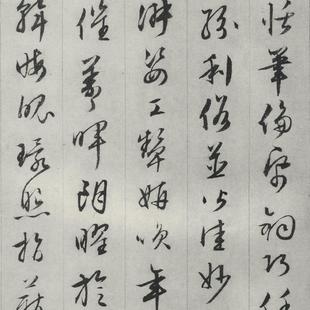 恬筆倫帋鈞巧任
紛利俗並皆佳妙
淑姿工顰妍咲年
催羲暉朗曜旋
斡晦魄環照指薪